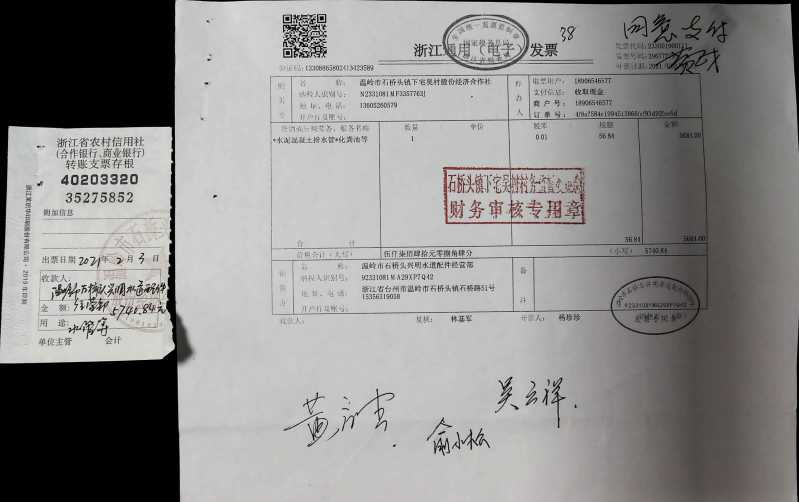 浙江省农村信用社
(合作银行、商业银行)
转账支票存根
40203320
35275852
附加信息
出票日期 2021 年 2 月 3 日
收款人:
温岭市石桥头兴明水道配件
经营部
金 额: 5740.84元
用 途: 水管等
单位主管 会计
38
同意支付
浙江通用(电子)发票
温岭市石桥头镇下宅吴村股份经济合作社
纳税人识别号: N2331081MF3357763J
地 址、电话: 13605260579
开户行及账号:
发票用户: 18906546577
支付信息: 收取现金
商 户 号: 18906546577
订 单 号:
数量 单价 税率 税额 金额
*水泥混凝土排水管*化粪池等 1 0.01 56.84 5684.00
石桥头镇下宅吴村村务监督委员会
财务审核专用章
合 计 56.84
价税合计(大写) 伍仟柒佰肆拾元零捌角肆分 (小写) 5740.84
名 称: 温岭市石桥头兴明水道配件经营部
纳税人识别号: 92331081MA29XP7Q42
地 址、电话: 浙江省台州市温岭市石桥头镇石桥路51号
15356319058
开户行及账号:
备
注
92331081MA29XP7Q42
发票专用章
收款人: 复核: 林基军 开票人: 杨珍珍
吴云祥
俞小松